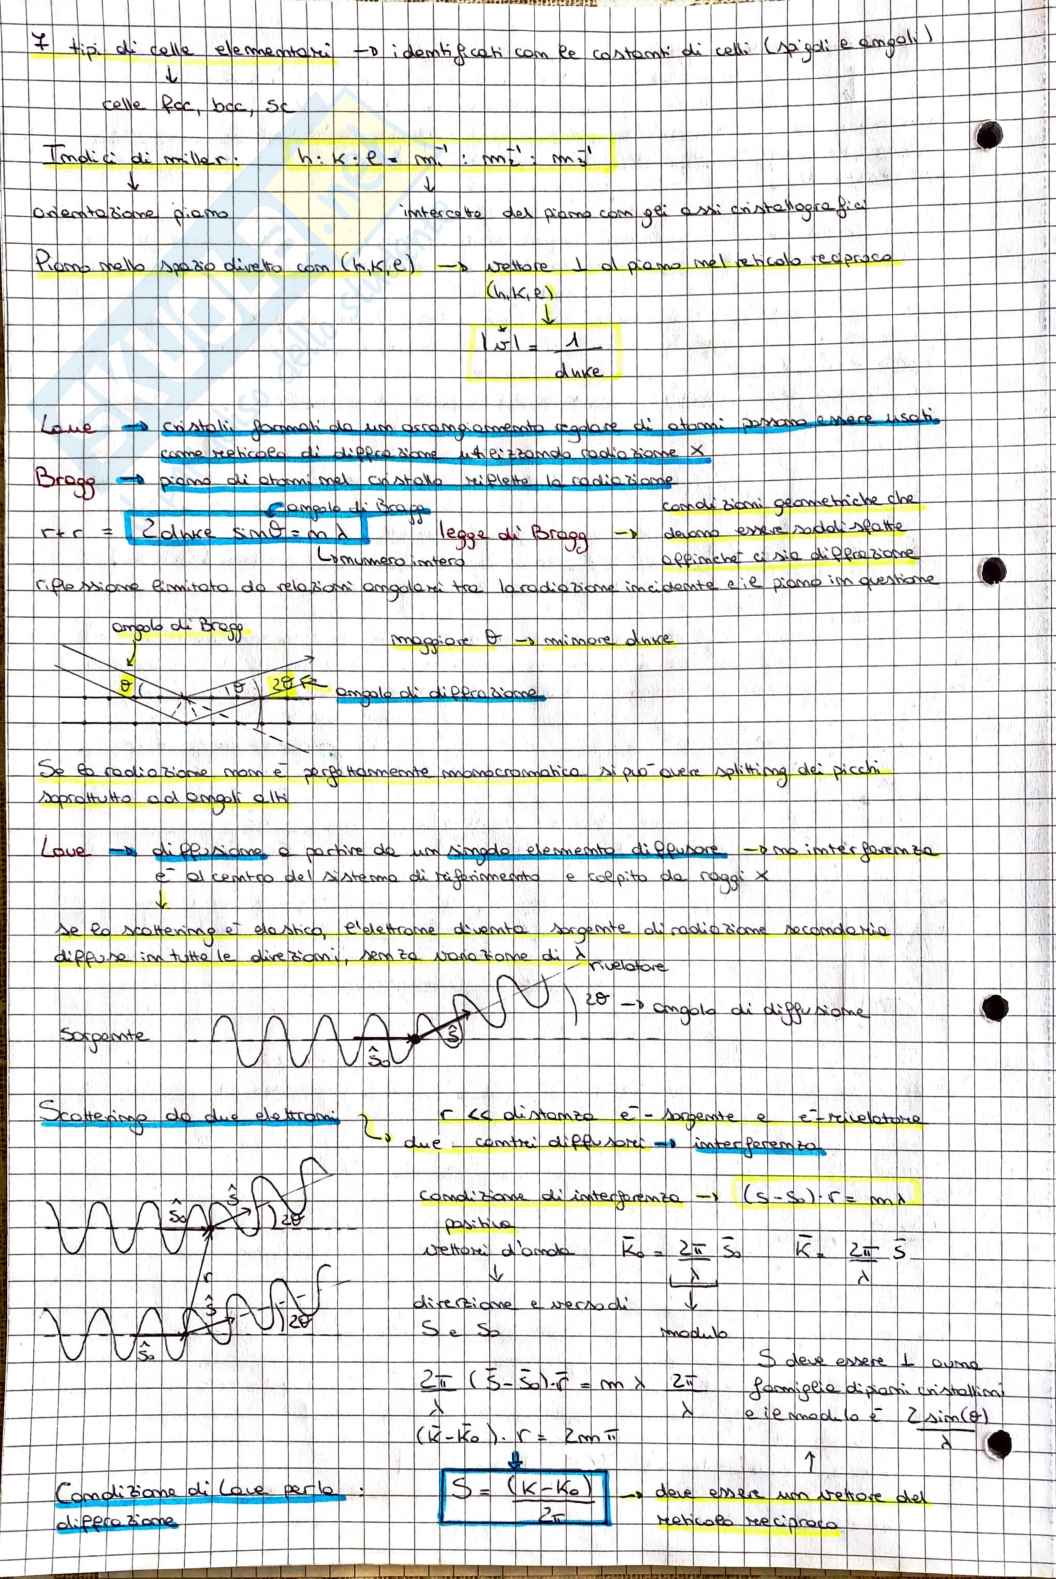 7 tipi di celle elementari → identificati con le costanti di celli (spigoli e angoli)
↓
celle fcc, bcc, sc
Indici di miller: h : k : l = m₁⁻¹ : m₂⁻¹ : m₃⁻¹
↓ ↓
orientazione piano intercette del piano con gli assi cristallografici
Piano nello spazio diretto con (h,k,l) → vettore ⊥ al piano nel reticolo reciproco
(h,k,l)
↓
|v*| = 1/dhkl
Laue → cristalli formati da un arrangiamento regolare di atomi possono essere usati
come reticolo di diffrazione utilizzando radiazione x
Bragg → piano di atomi nel cristallo riflette la radiazione
angolo di Bragg
r+r = 2dhkl sinθ = nλ legge di Bragg → condizioni geometriche che
devono essere soddisfatte
affinché ci sia diffrazione
↳ numero intero
riflessione limitata da relazioni angolari tra la radiazione incidente e il piano in questione
angolo di Bragg
maggiore θ → minore dhkl
θ θ 2θ ← angolo di diffrazione
Se la radiazione non è perfettamente monocromatica si può avere splitting dei picchi
soprattutto ad angoli alti
Laue → diffusione a partire da un singolo elemento diffusore → no interferenza
e⁻ al centro del sistema di riferimento e colpito da raggi x
↓
se lo scattering è elastico, l'elettrone diventa sorgente di radiazione secondaria
diffusa in tutte le direzioni, senza variazione di λ
rivelatore
2θ → angolo di diffusione
sorgente
ŝ₀ ŝ
Scattering da due elettroni r << distanza e⁻ - sorgente e e⁻ - rivelatore
↳ due centri diffusori → interferenza
ŝ₀ ŝ 2θ
condizione di interferenza → (s-s₀)·r = nλ
positiva
vettori d'onda k̄₀ = 2π/λ s̄₀ k̄ = 2π/λ s̄
↓ ↓
r
direzione e verso di
s e s₀ modulo
ŝ₀ ŝ 2θ
2π/λ (s̄-s̄₀)·r̄ = nλ 2π/λ
(k̄-k̄₀)·r = 2nπ
↓
S deve essere ⊥ a una
famiglia di piani cristallini
e il modulo è 2sin(θ)/λ
↑
Condizione di Laue per la
diffrazione :
S = (k-k₀)/2π → deve essere un vettore del
reticolo reciproco